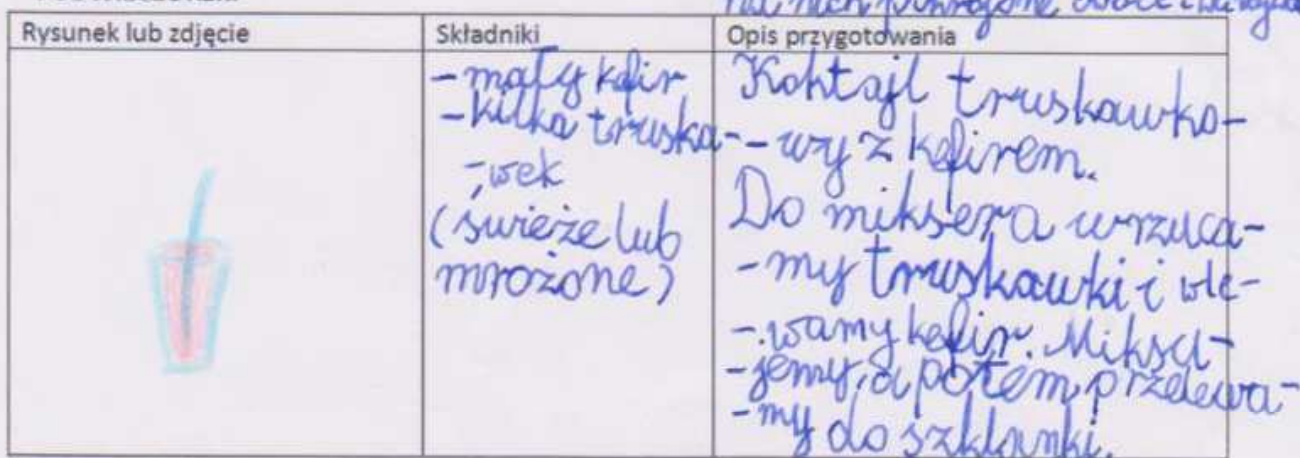 na nich pokrojone owoce i warzywa
Rysunek lub zdjęcie
Składniki
Opis przygotowania
- mały kefir
- kilka truska-
-wek
(świeże lub
mrożone)
Koktajl truskawko-
-wy z kefirem.
Do miksera wrzuca-
-my truskawki i wle-
-wamy kefir. Miksu-
-jemy, a potem przelewa-
-my do szklanki.